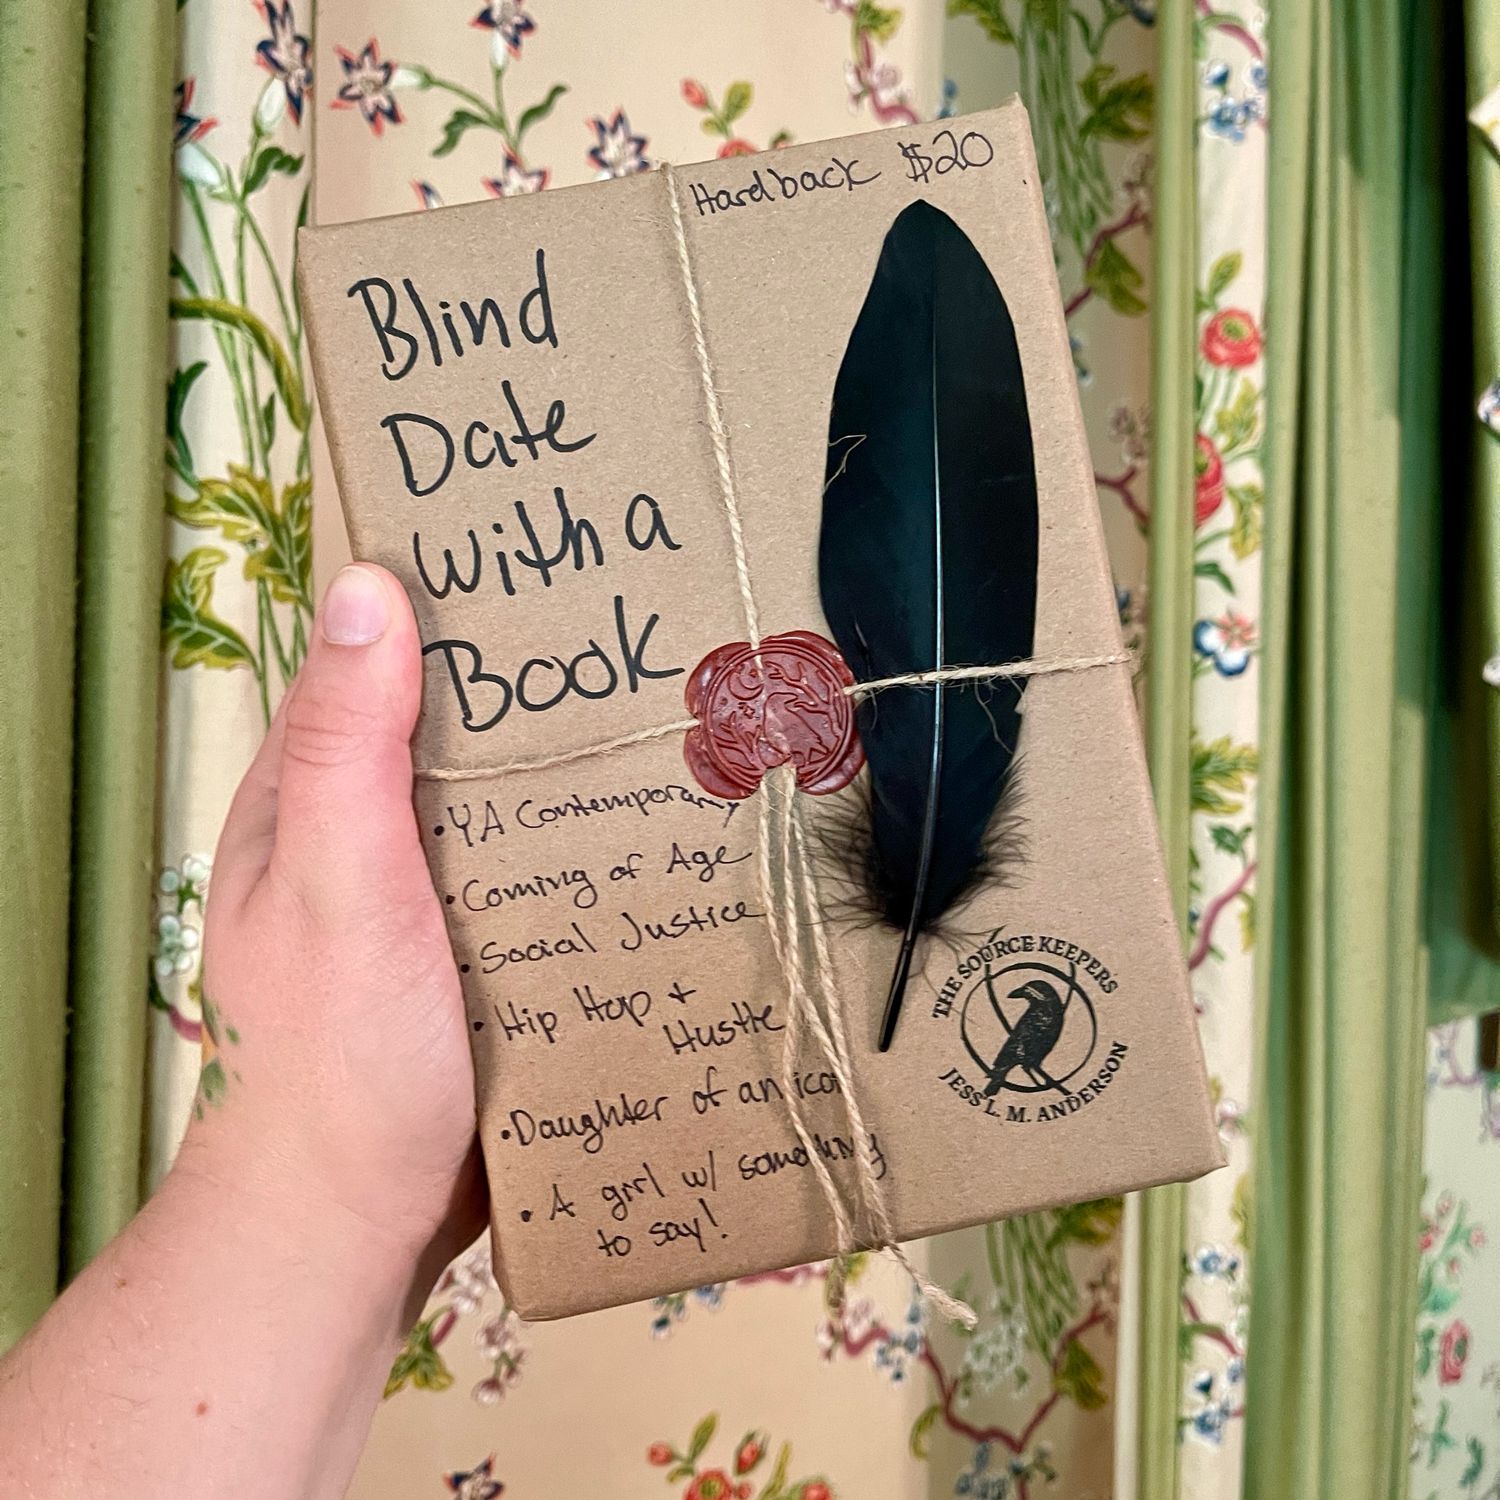 Hardback $20
Blind
Date
with a
Book
• YA Contemporary
• Coming of Age
• Social Justice
• Hip Hop +
Hustle
• Daughter of an icon
• A girl w/ something
to say!
THE SOURCE KEEPERS
JESS L. M. ANDERSON